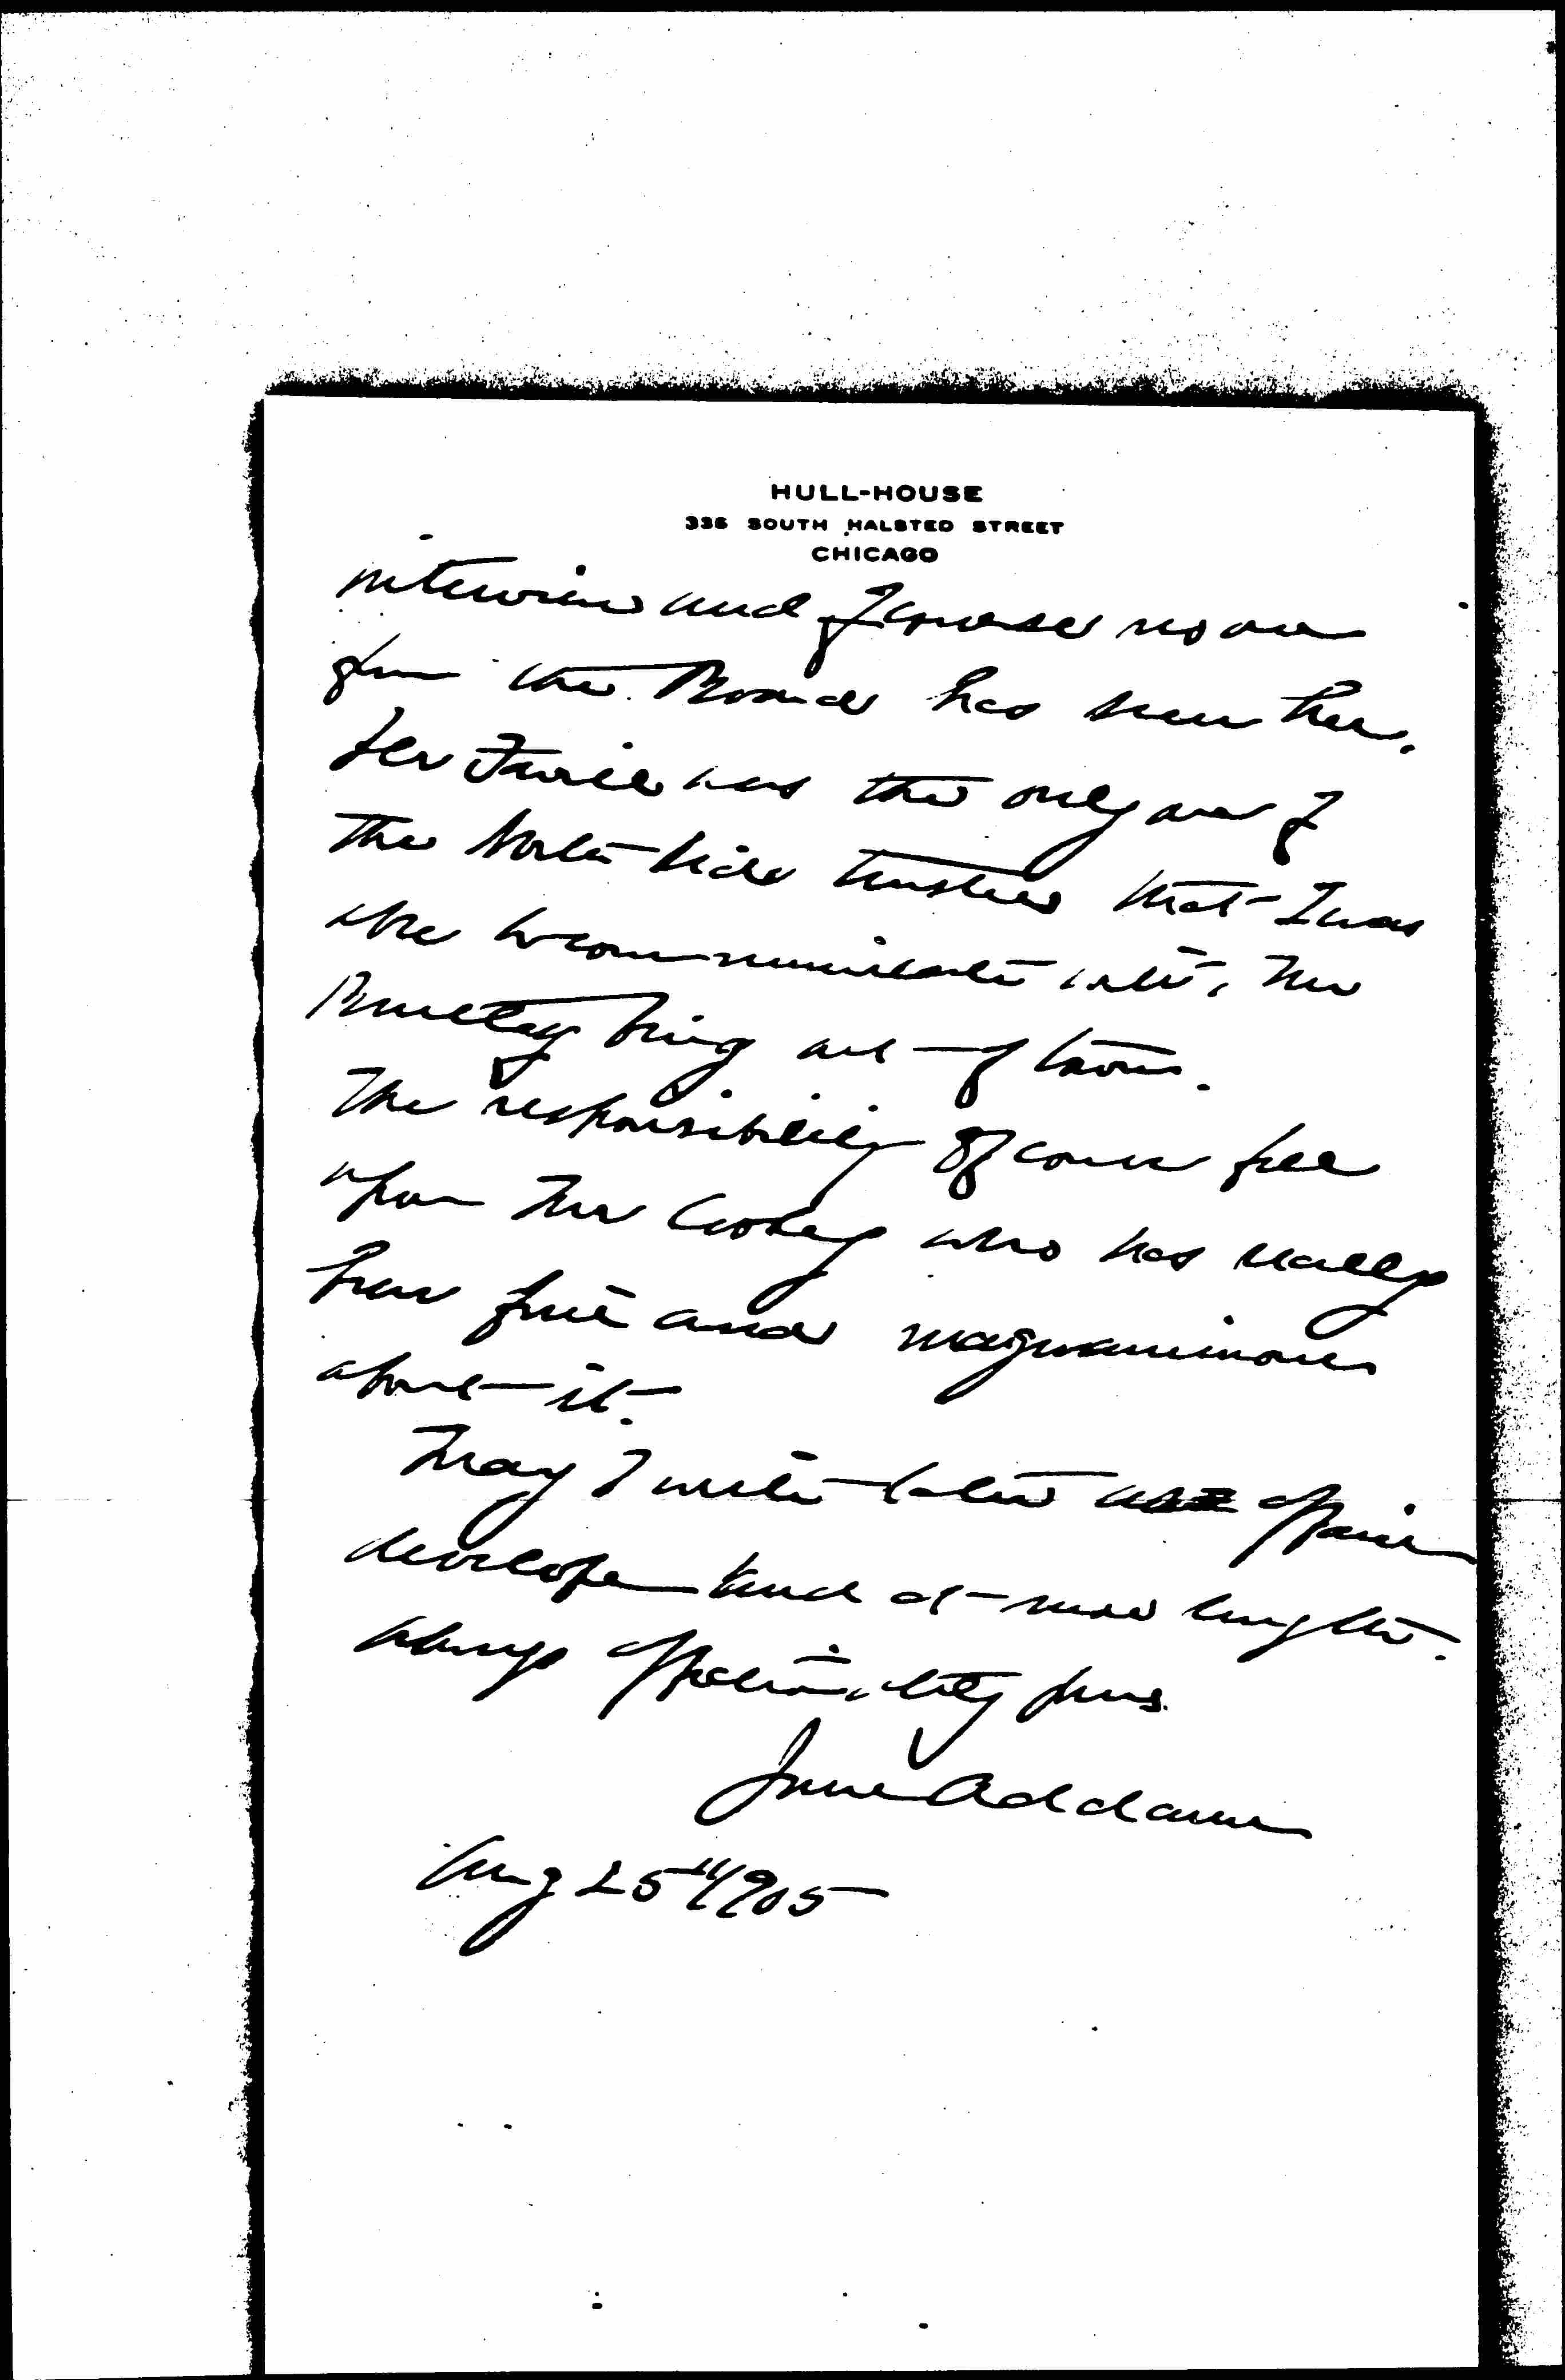 HULL-HOUSE
335 SOUTH HALSTED STREET
CHICAGO
interview and of course no one
from the Board has seen her.
was the only one of
the North Side trustees that I was
able to communicate with, Mr
being out of town.
The responsibility of course fell
upon Mr Cooley who has really
been fine and magnanimous
about it.
May I write later as affairs
develope and at more length.
Always affectionately yours
Jane Addams
Aug 25" 1905